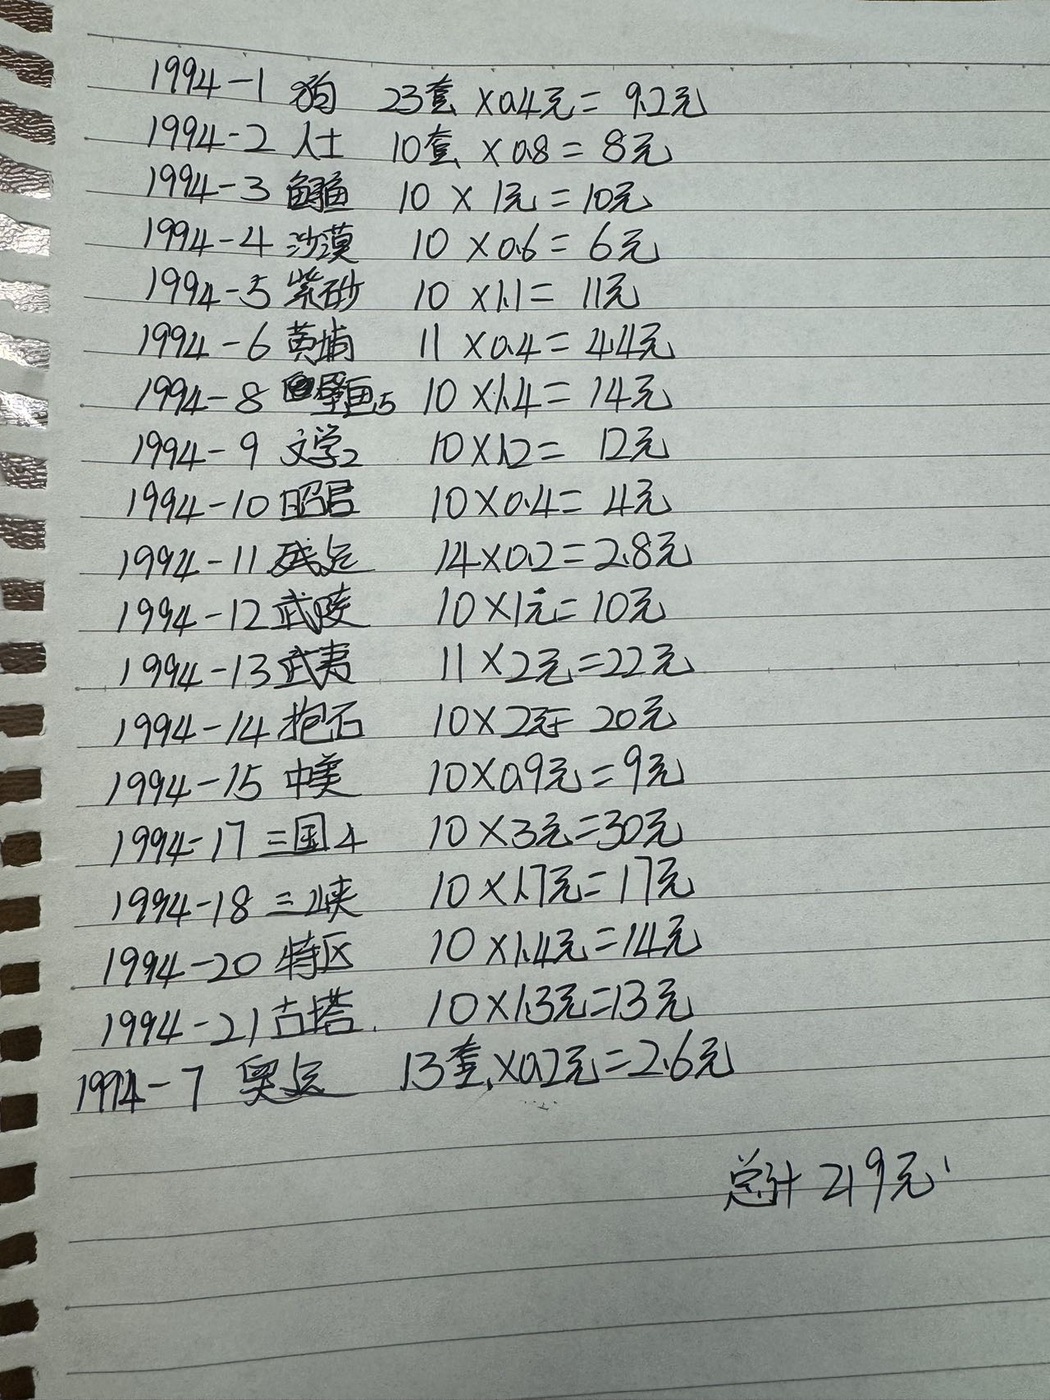 1994-1 狗 23套 ×0.4元= 9.2元
1994-2 人士 10套 ×0.8= 8元
1994-3 鲟鱼 10 × 1元=10元
1994-4 沙漠 10 ×0.6= 6元
1994-5 紫砂 10 ×1.1= 11元
1994-6 黄埔 11 ×0.4= 4.4元
1994-8 壁画5 10×1.4= 14元
1994-9 文学2 10×1.2= 12元
1994-10 昭君 10×0.4= 4元
1994-11 残运 14×0.2=2.8元
1994-12 武陵 10×1元=10元
1994-13 武夷 11×2元=22元
1994-14 抱石 10×2元= 20元
1994-15 中美 10×0.9元=9元
1994-17 三国4 10×3元=30元
1994-18 三峡 10×1.7元=17元
1994-20 特区 10×1.4元=14元
1994-21 古塔. 10×1.3元=13元
1994-7 奥运 13套×0.2元=2.6元
总计219元